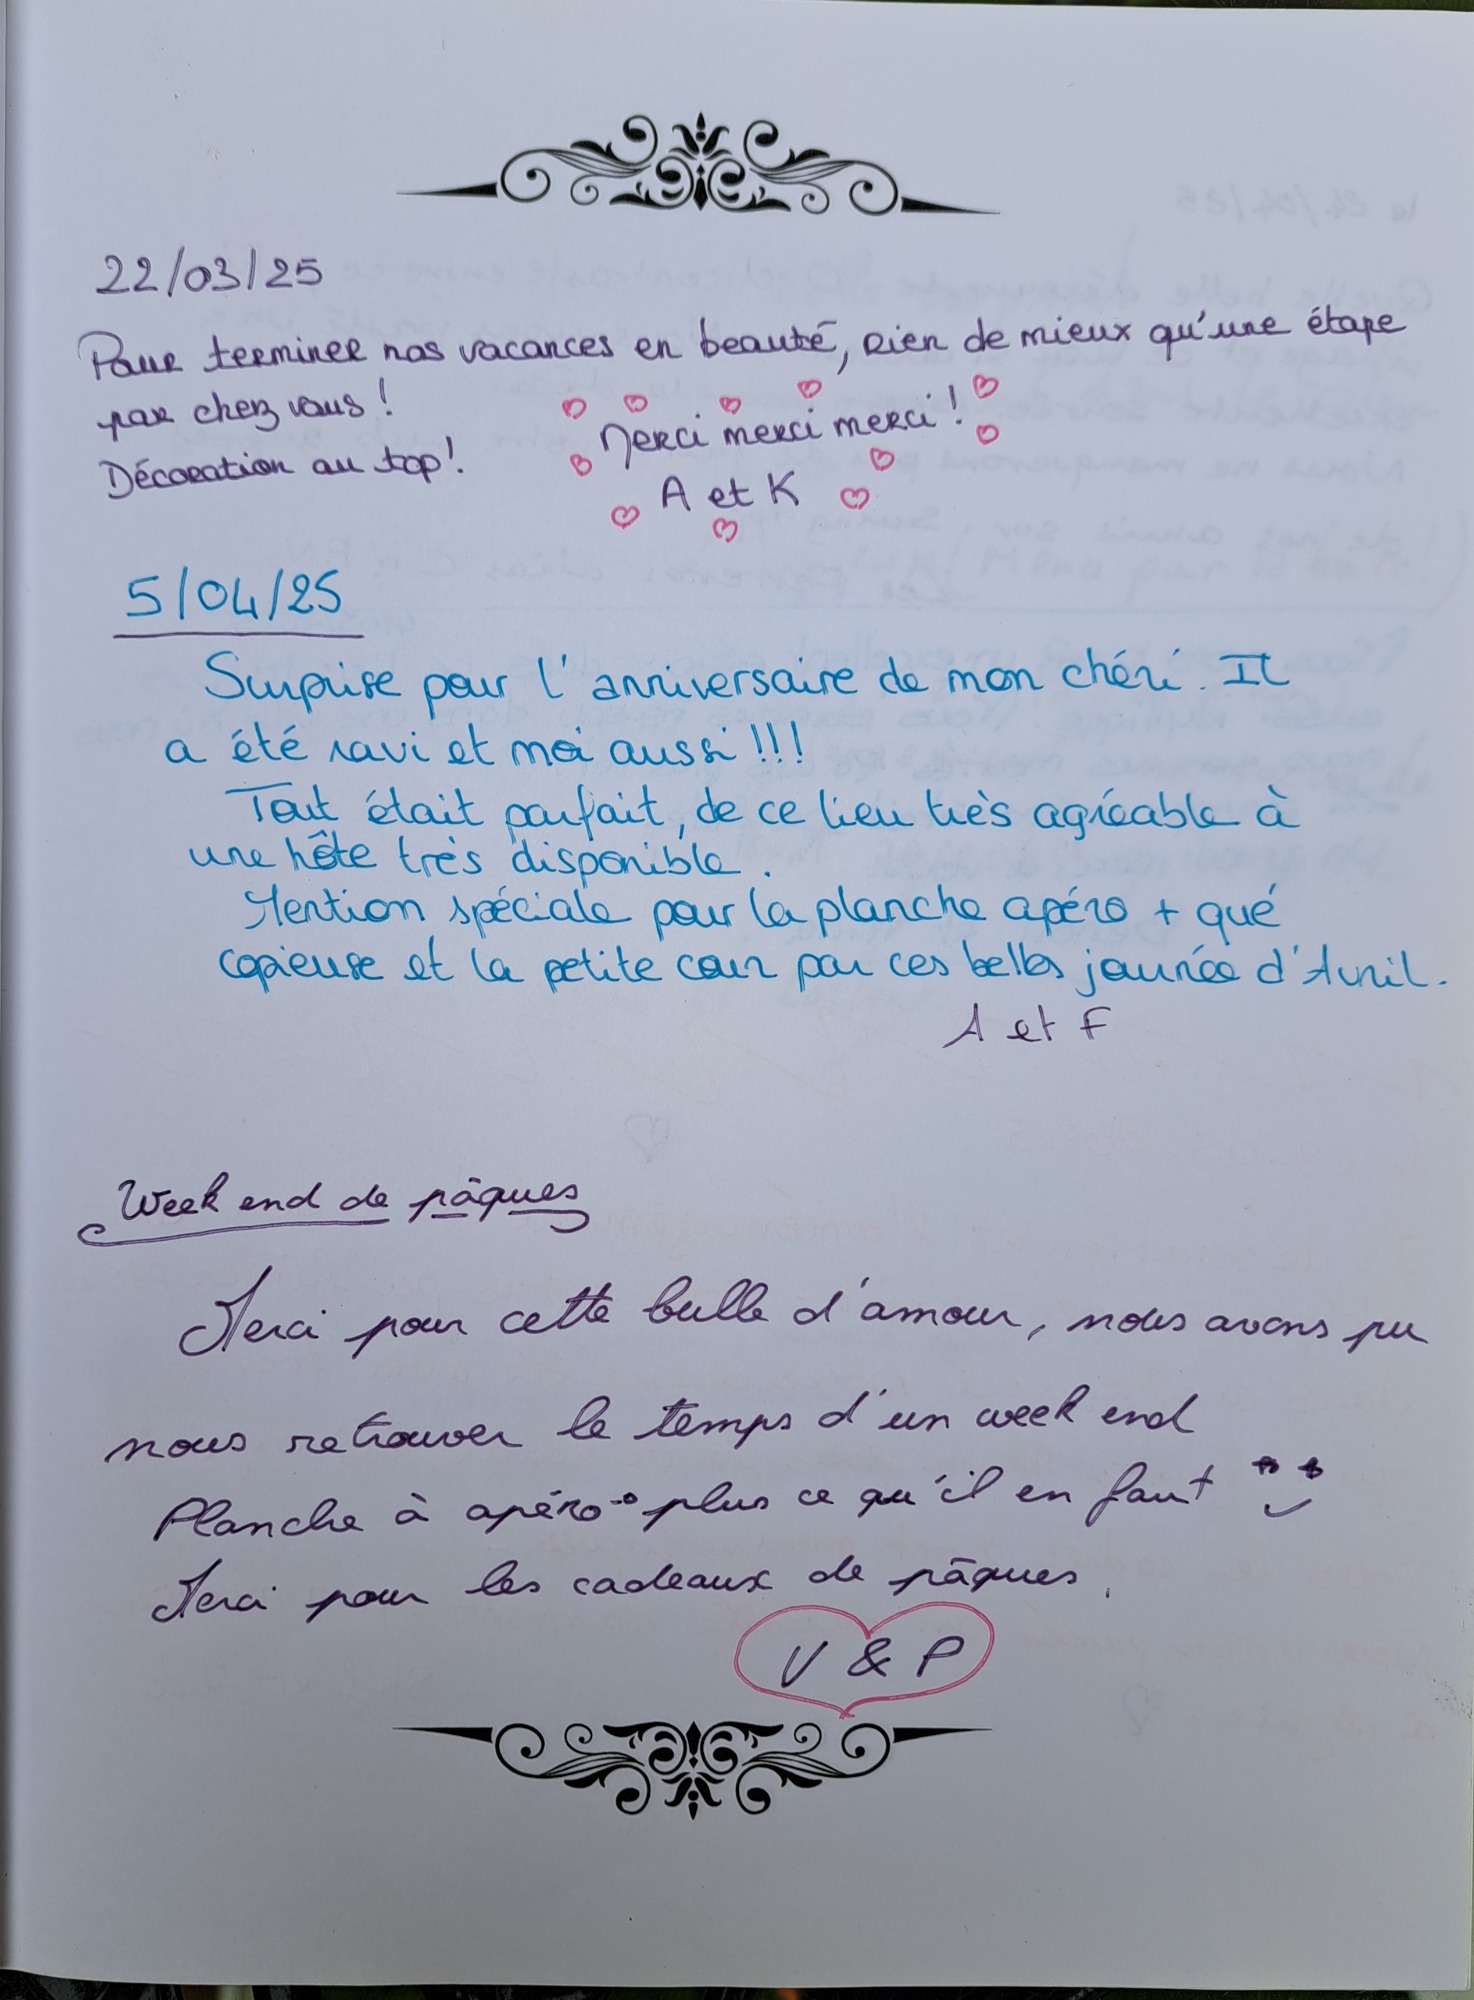 22/03/25
Pour terminer nos vacances en beauté, rien de mieux qu'une étape
par chez vous !
Merci merci merci !
Décoration au top !
A et K
5/04/25
Surprise pour l'anniversaire de mon chéri. Il
a été ravi et moi aussi !!!
Tout était parfait, de ce lieu très agréable à
une hôte très disponible.
Mention spéciale pour la planche apéro + qué
copieuse et la petite cour par ces belles journée d'Avril.
A et F
Week end de pâques
Merci pour cette bulle d'amour, nous avons pu
nous retrouver le temps d'un week end
Planche à apéro → plus ce qu'il en faut
Merci pour les cadeaux de pâques.
V & P